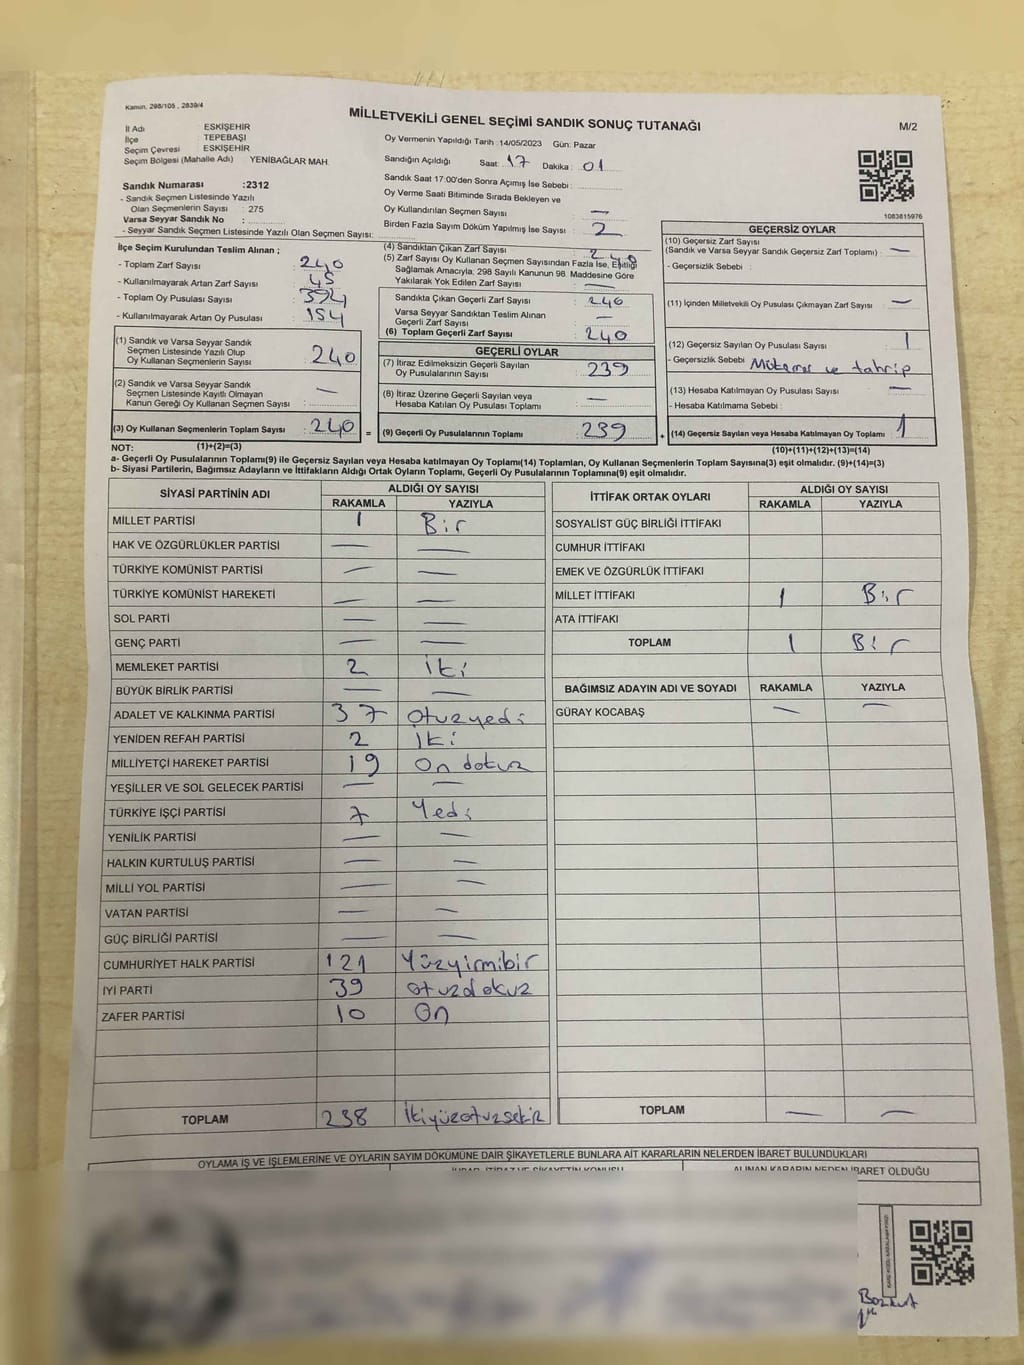 Kanun. 298/105 , 2839/4
MİLLETVEKİLİ GENEL SEÇİMİ SANDIK SONUÇ TUTANAĞI
M/2
İl Adı : ESKİŞEHİR
İlçe : TEPEBAŞI
Seçim Çevresi : ESKİŞEHİR
Seçim Bölgesi (Mahalle Adı) YENİBAĞLAR MAH.
Sandık Numarası :2312
- Sandık Seçmen Listesinde Yazılı
Olan Seçmenlerin Sayısı : 275
Varsa Seyyar Sandık No :
- Seyyar Sandık Seçmen Listesinde Yazılı Olan Seçmen Sayısı:
Oy Vermenin Yapıldığı Tarih :14/05/2023 Gün: Pazar
Sandığın Açıldığı Saat: 17 Dakika : 01
Sandık Saat 17:00'den Sonra Açımış İse Sebebi :
Oy Verme Saati Bitiminde Sırada Bekleyen ve
Oy Kullandırılan Seçmen Sayısı : —
Birden Fazla Sayım Döküm Yapılmış İse Sayısı : 2
1083815976
İlçe Seçim Kurulundan Teslim Alınan ;
- Toplam Zarf Sayısı : 240
- Kullanılmayarak Artan Zarf Sayısı : 45
- Toplam Oy Pusulası Sayısı : 394
- Kullanılmayarak Artan Oy Pusulası : 154
(1) Sandık ve Varsa Seyyar Sandık
Seçmen Listesinde Yazılı Olup
Oy Kullanan Seçmenlerin Sayısı : 240
(2) Sandık ve Varsa Seyyar Sandık
Seçmen Listesinde Kayıtlı Olmayan
Kanun Gereği Oy Kullanan Seçmen Sayısı : —
(3) Oy Kullanan Seçmenlerin Toplam Sayısı : 240
(4) Sandıktan Çıkan Zarf Sayısı : 240
(5) Zarf Sayısı Oy Kullanan Seçmen Sayısından Fazla İse, Eşitliği
Sağlamak Amacıyla, 298 Sayılı Kanunun 98. Maddesine Göre
Yakılarak Yok Edilen Zarf Sayısı : —
Sandıkta Çıkan Geçerli Zarf Sayısı : 240
Varsa Seyyar Sandıktan Teslim Alınan
Geçerli Zarf Sayısı : —
(6) Toplam Geçerli Zarf Sayısı : 240
GEÇERLİ OYLAR
(7) İtiraz Edilmeksizin Geçerli Sayılan
Oy Pusulalarının Sayısı : 239
(8) İtiraz Üzerine Geçerli Sayılan veya
Hesaba Katılan Oy Pusulası Toplamı : —
= (9) Geçerli Oy Pusulalarının Toplamı : 239
GEÇERSİZ OYLAR
(10) Geçersiz Zarf Sayısı
(Sandık ve Varsa Seyyar Sandık Geçersiz Zarf Toplamı) : —
- Geçersizlik Sebebi :
(11) İçinden Milletvekili Oy Pusulası Çıkmayan Zarf Sayısı : —
(12) Geçersiz Sayılan Oy Pusulası Sayısı : 1
- Geçersizlik Sebebi : ve tahrip
(13) Hesaba Katılmayan Oy Pusulası Sayısı : —
- Hesaba Katılmama Sebebi :
+ (14) Geçersiz Sayılan veya Hesaba Katılmayan Oy Toplamı : 1
NOT: (1)+(2)=(3)
(10)+(11)+(12)+(13)=(14)
a- Geçerli Oy Pusulalarının Toplamı(9) ile Geçersiz Sayılan veya Hesaba katılmayan Oy Toplamı(14) Toplamları, Oy Kullanan Seçmenlerin Toplam Sayısına(3) eşit olmalıdır. (9)+(14)=(3)
b- Siyasi Partilerin, Bağımsız Adayların ve İttifakların Aldığı Ortak Oyların Toplamı, Geçerli Oy Pusulalarının Toplamına(9) eşit olmalıdır.
SİYASİ PARTİNİN ADI ALDIĞI OY SAYISI
RAKAMLA YAZIYLA
MİLLET PARTİSİ 1 Bir
HAK VE ÖZGÜRLÜKLER PARTİSİ — —
TÜRKİYE KOMÜNİST PARTİSİ — —
TÜRKİYE KOMÜNİST HAREKETİ — —
SOL PARTİ — —
GENÇ PARTİ — —
MEMLEKET PARTİSİ 2 iki
BÜYÜK BİRLİK PARTİSİ — —
ADALET VE KALKINMA PARTİSİ 37 Otuzyedi
YENİDEN REFAH PARTİSİ 2 İki
MİLLİYETÇİ HAREKET PARTİSİ 19 On dokuz
YEŞİLLER VE SOL GELECEK PARTİSİ — —
TÜRKİYE İŞÇİ PARTİSİ 7 Yedi
YENİLİK PARTİSİ — —
HALKIN KURTULUŞ PARTİSİ — —
MİLLİ YOL PARTİSİ — —
VATAN PARTİSİ — —
GÜÇ BİRLİĞİ PARTİSİ — —
CUMHURİYET HALK PARTİSİ 121 Yüzyirmibir
İYİ PARTİ 39 otuzdokuz
ZAFER PARTİSİ 10 On
TOPLAM 238 İkiyüzotuzsekiz
İTTİFAK ORTAK OYLARI ALDIĞI OY SAYISI
RAKAMLA YAZIYLA
SOSYALİST GÜÇ BİRLİĞİ İTTİFAKI
CUMHUR İTTİFAKI
EMEK VE ÖZGÜRLÜK İTTİFAKI
MİLLET İTTİFAKI 1 Bir
ATA İTTİFAKI
TOPLAM 1 Bir
BAĞIMSIZ ADAYIN ADI VE SOYADI RAKAMLA YAZIYLA
GÜRAY KOCABAŞ — —
TOPLAM — —
OYLAMA İŞ VE İŞLEMLERİNE VE OYLARIN SAYIM DÖKÜMÜNE DAİR ŞİKAYETLERLE BUNLARA AİT KARARLARIN NELERDEN İBARET BULUNDUKLARI
İTİRAZ VE ŞİKAYETİN KONUSU
ALINAN KARARIN NEDEN İBARET OLDUĞU
Bozkurt